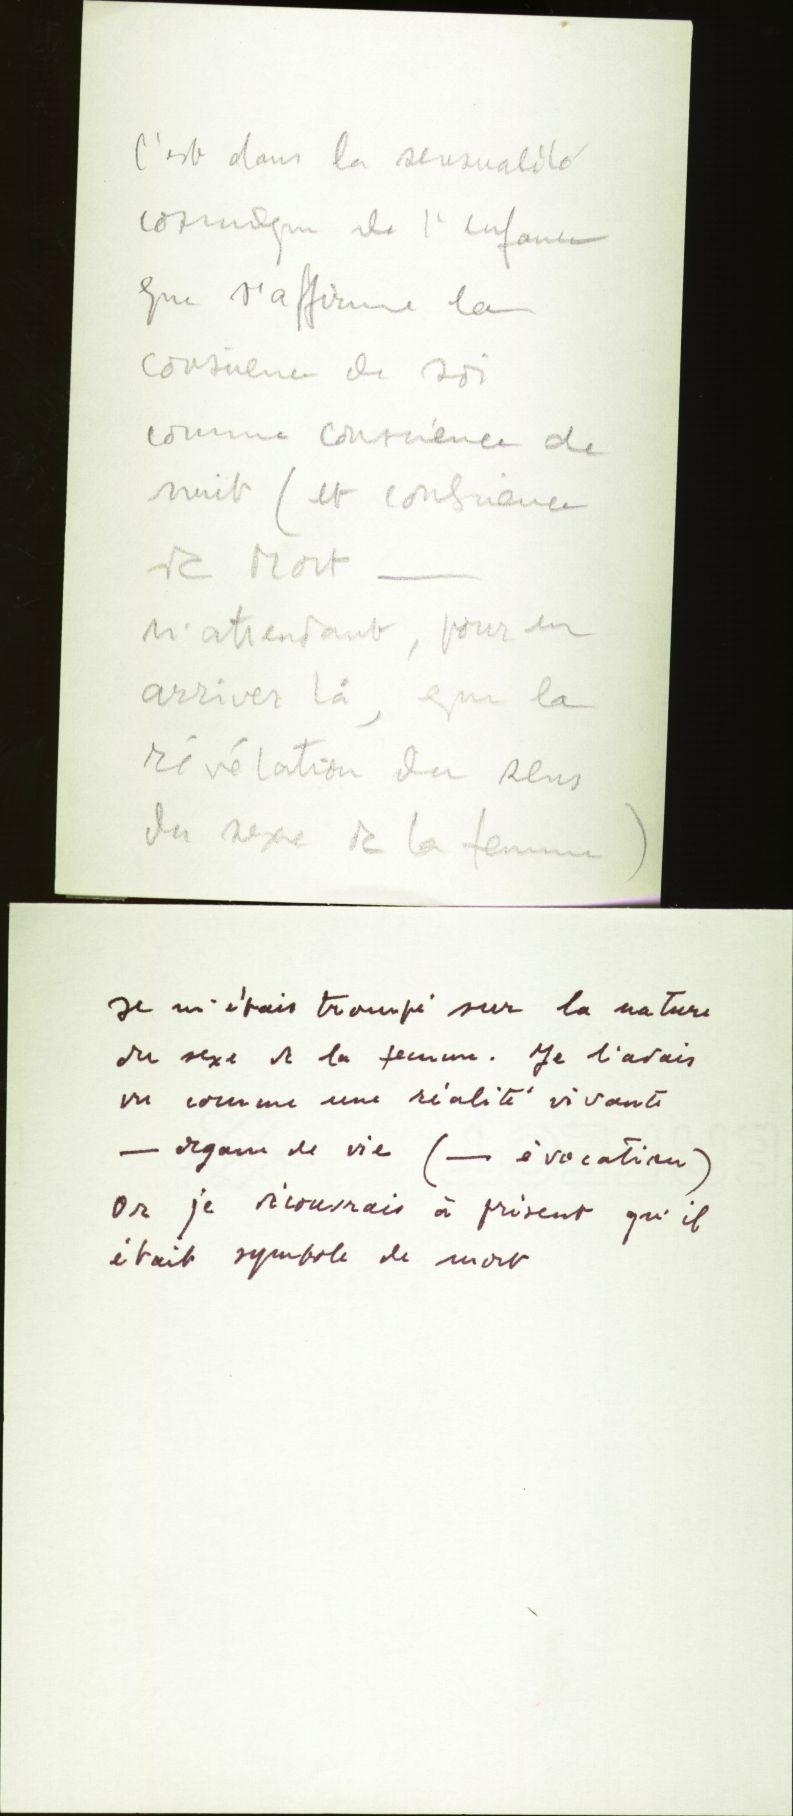 C'est dans la sensualité
cosmique de l'enfance
que s'affirme la
conscience de soi
comme conscience de
nuit (et conscience
de Mort —
n'attendant, pour en
arriver là, que la
révélation du sens
du sexe de la femme)
Je m'étais trompé sur la nature
du sexe de la femme. Je l'avais
vu comme une réalité vivante
— organe de vie (— évocation)
Or je découvrais à présent qu'il
était symbole de mort